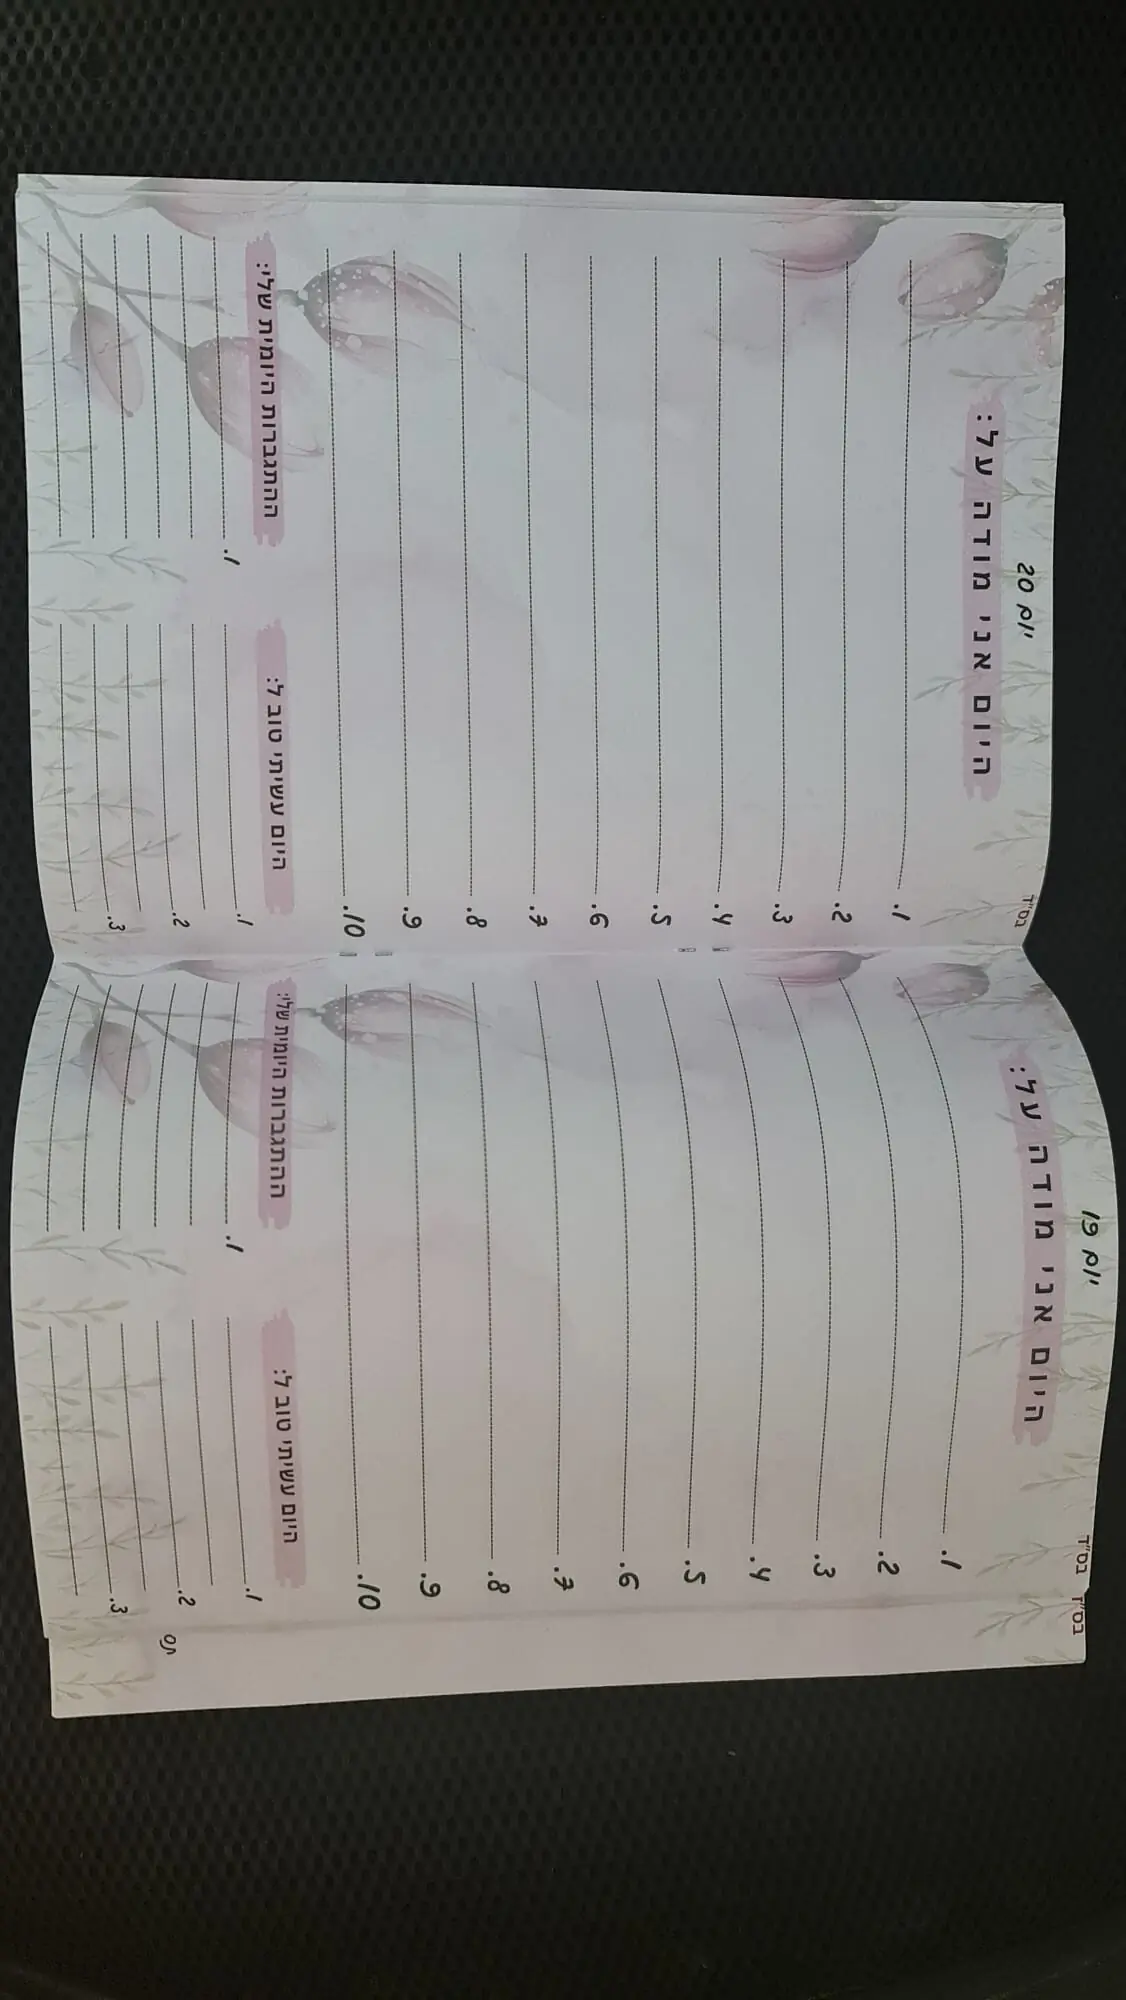 בס"ד
יום 19
היום אני מודה על:
1.
2.
3.
4.
5.
6.
7.
8.
9.
10.
היום עשיתי טוב ל:
1.
2.
3.
ההתגברות היומית שלי:
1.
בס"ד
יום 20
היום אני מודה על:
1.
2.
3.
4.
5.
6.
7.
8.
9.
10.
היום עשיתי טוב ל:
1.
2.
3.
ההתגברות היומית שלי:
1.
בס"ד